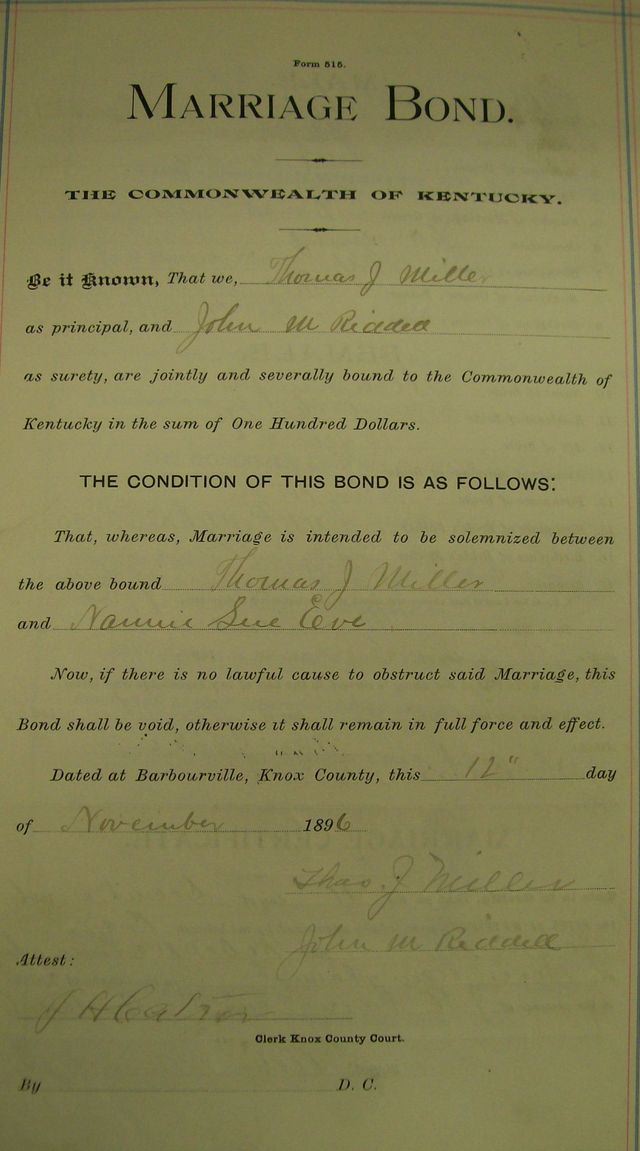 Form 515.
MARRIAGE BOND.
THE COMMONWEALTH OF KENTUCKY.
Be it Known, That we, Thomas J Miller
as principal, and John M
as surety, are jointly and severally bound to the Commonwealth of
Kentucky in the sum of One Hundred Dollars.
THE CONDITION OF THIS BOND IS AS FOLLOWS:
That, whereas, Marriage is intended to be solemnized between
the above bound Thomas J Miller
and Nannie Sue Eve
Now, if there is no lawful cause to obstruct said Marriage, this
Bond shall be void, otherwise it shall remain in full force and effect.
Dated at Barbourville, Knox County, this 12" day
of November 1896
Thos. J Miller
John M
Attest:
J H Catron
Clerk Knox County Court.
By D. C.